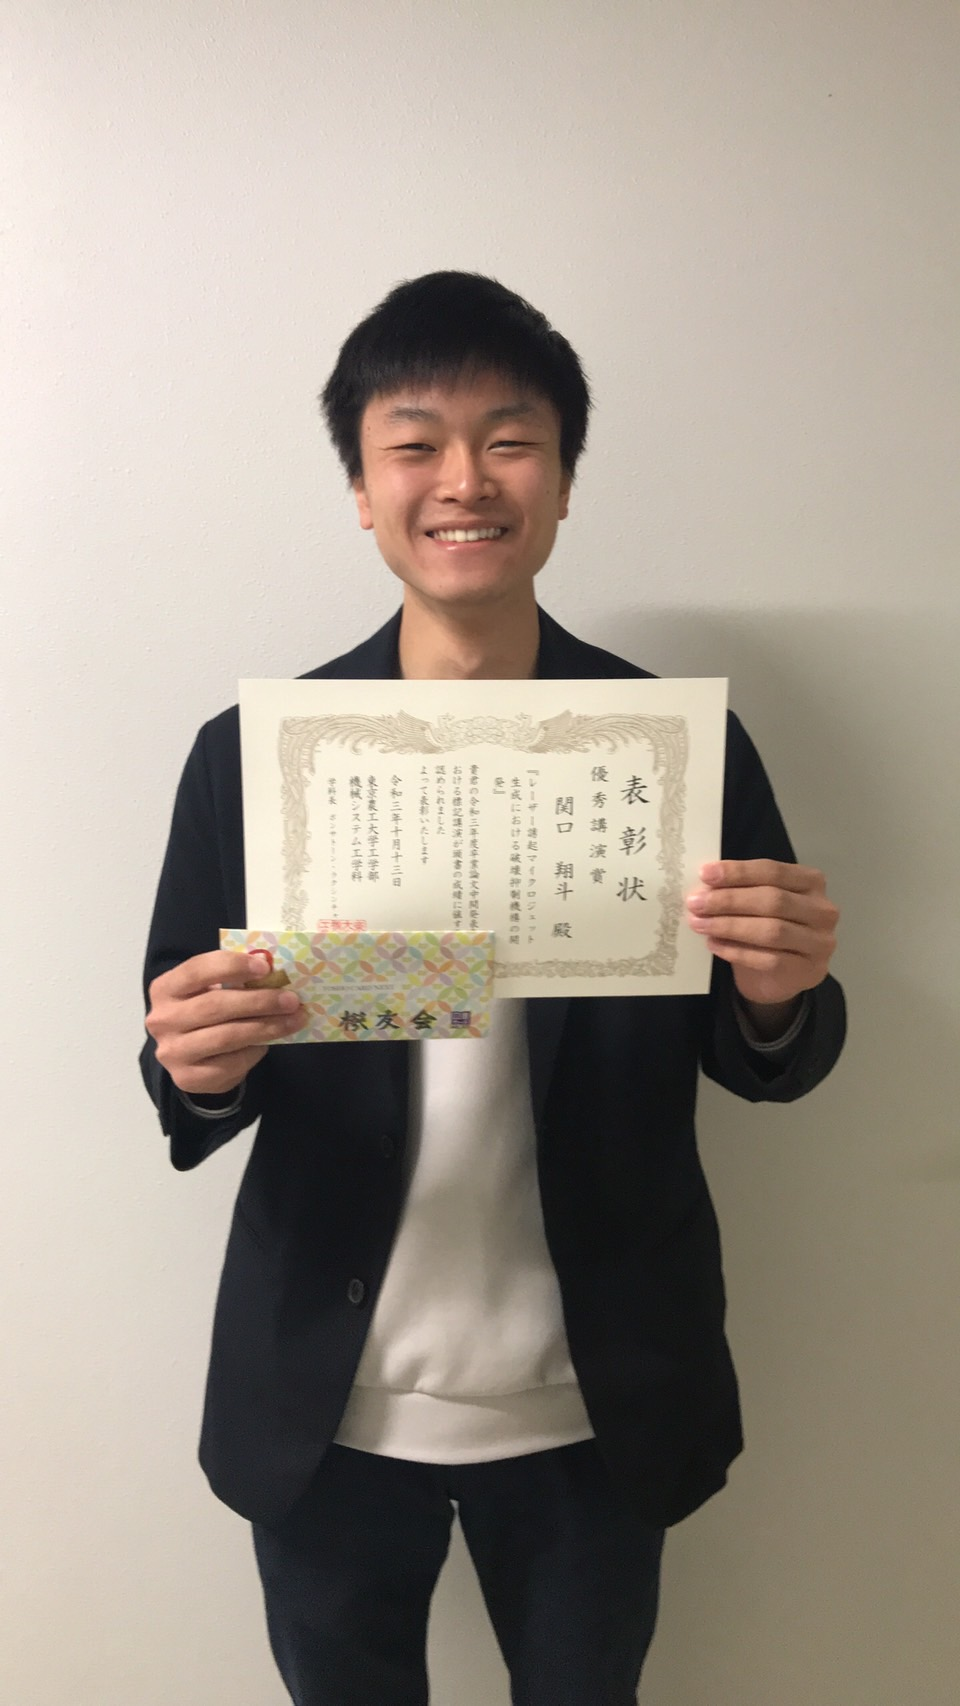 表彰状
優秀講演賞
関口 翔斗 殿
『レーザー誘起マイクロジェット
生成における破壊抑制機構の開
発』
貴君の令和三年度卒業論文中間発表
おける標記講演が頭書の成績に値す
認められました
よって表彰いたします
令和三年十月十三日
東京農工大学工学部
機械システム工学科
学科長 ポンサトーン・ラクシンチャ
桜友会